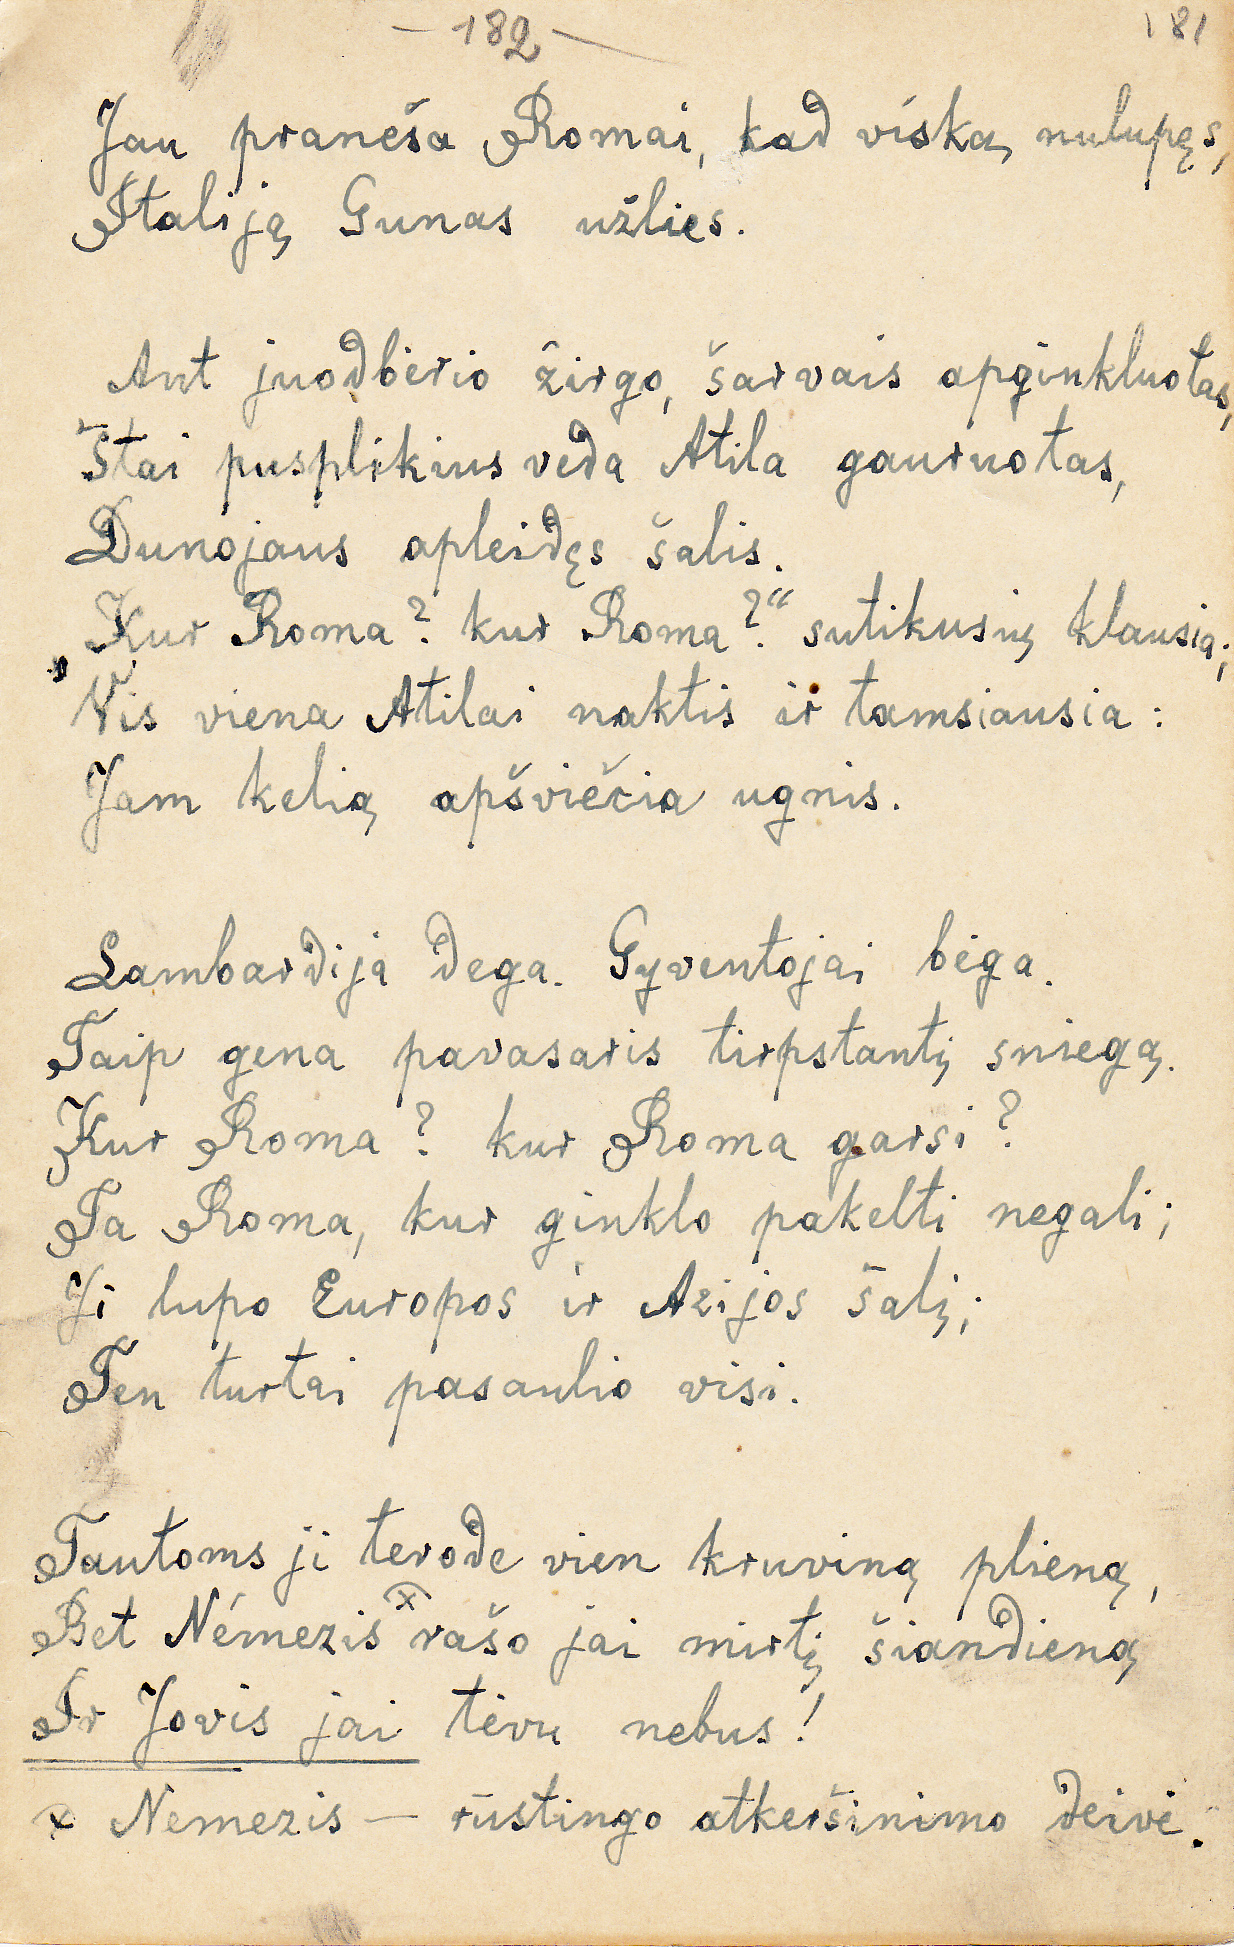 – 182 –
181
Jau praneša Romai, kad viską nulupęs,
Italiją Gunas užlies.
Ant juodbėrio žirgo, šarvais apginkluotas,
Štai pusplikius veda Atila gauruotas,
Dunojaus apleidęs šalis.
„Kur Roma? kur Roma?“ sutikusių klausia;
Vis viena Atilai naktis ir tamsiausia:
Jam kelią apšviečia ugnis.
Lambardija dega. Gyventojai bėga.
Taip gena pavasaris tirpstantį sniegą.
Kur Roma? kur Roma garsi?
Ta Roma, kur ginklo pakelti negali;
Ji lupo Europos ir Azijos šalį;
Ten turtai pasaulio visi.
Tautoms ji terodė vien kruviną plieną,
Bet Némezis x rašo jai mirtį šiandieną
Ir Jovis jai tėvu nebus!
x Nemezis — rūstingo atkeršinimo deivė.